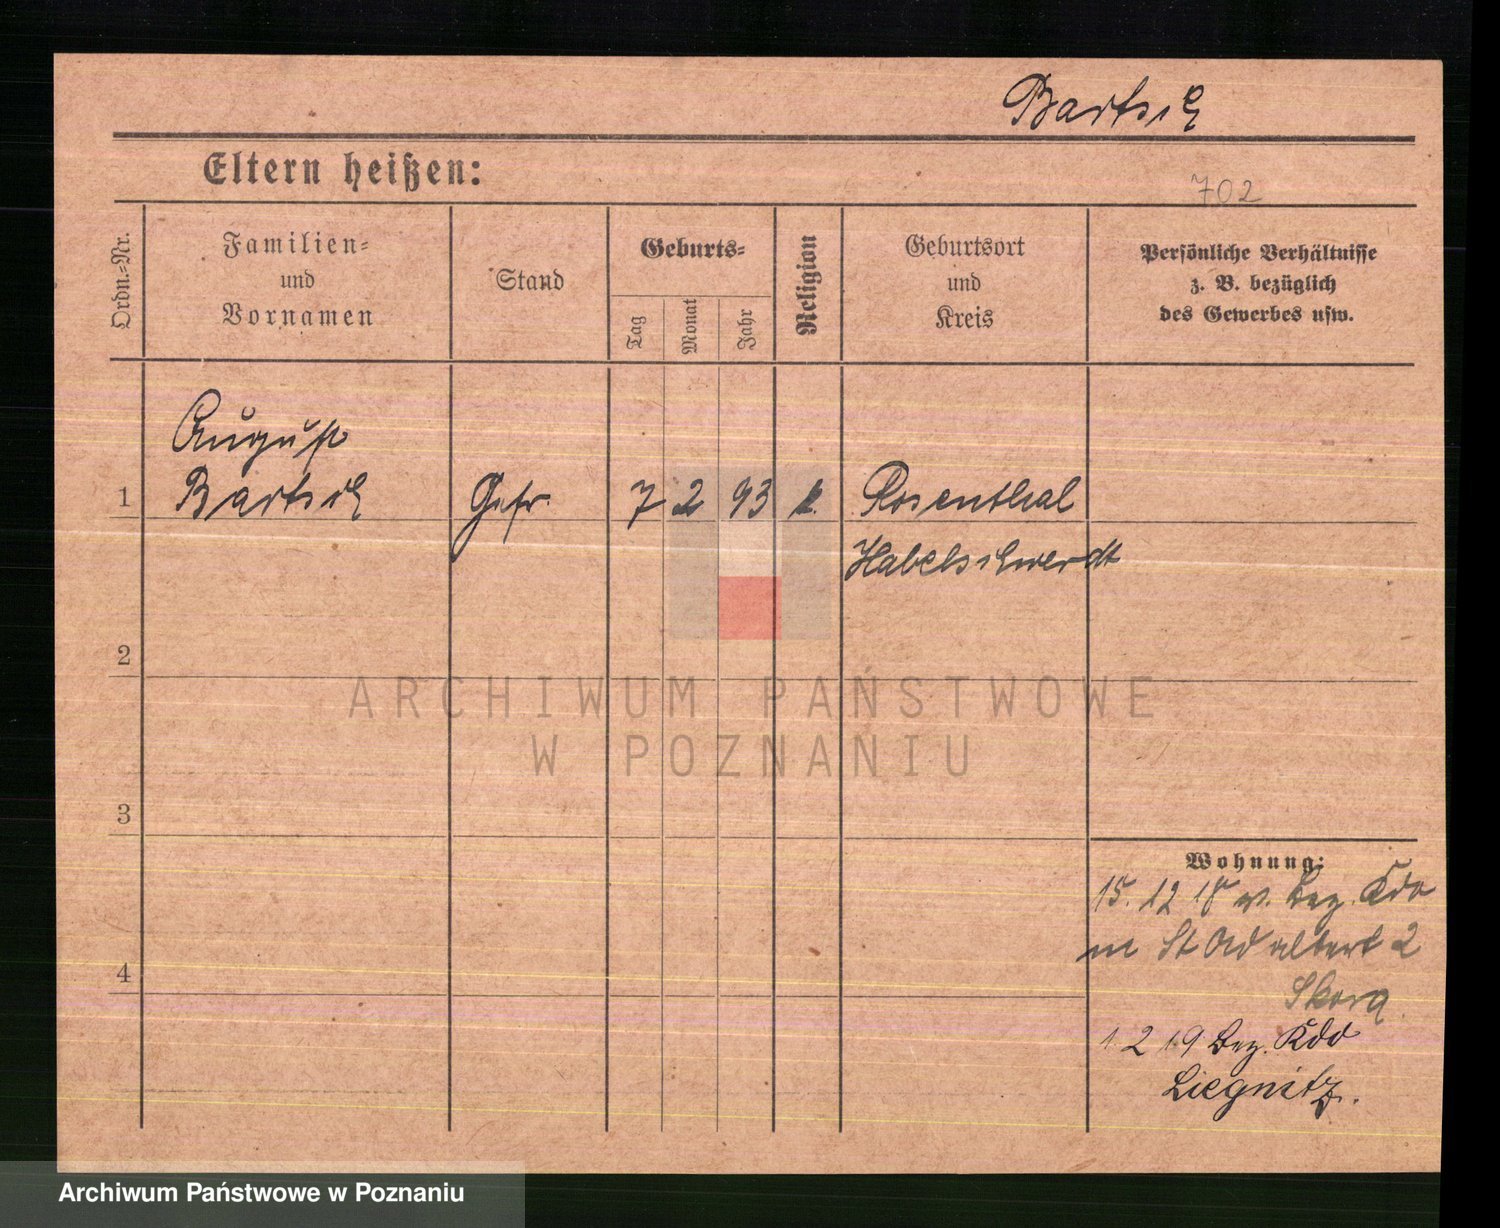 Bartsch
Eltern heißen:
702
Ordn.-Nr.
Familien-
und
Vornamen
Stand
Geburts-
Tag
Monat
Jahr
Religion
Geburtsort
und
Kreis
Persönliche Verhältnisse
z. B. bezüglich
des Gewerbes usw.
August
1 Bartsch Gefr. 7 2 93 k. Rosenthal
Habelschwerdt
2
3
4
Wohnung:
15. 12 18 v. Bez. Kdo
m St Adalbert 2
1 2 19 Bez. Kdo
Liegnitz.
ARCHIWUM PAŃSTWOWE
W POZNANIU
Archiwum Państwowe w Poznaniu